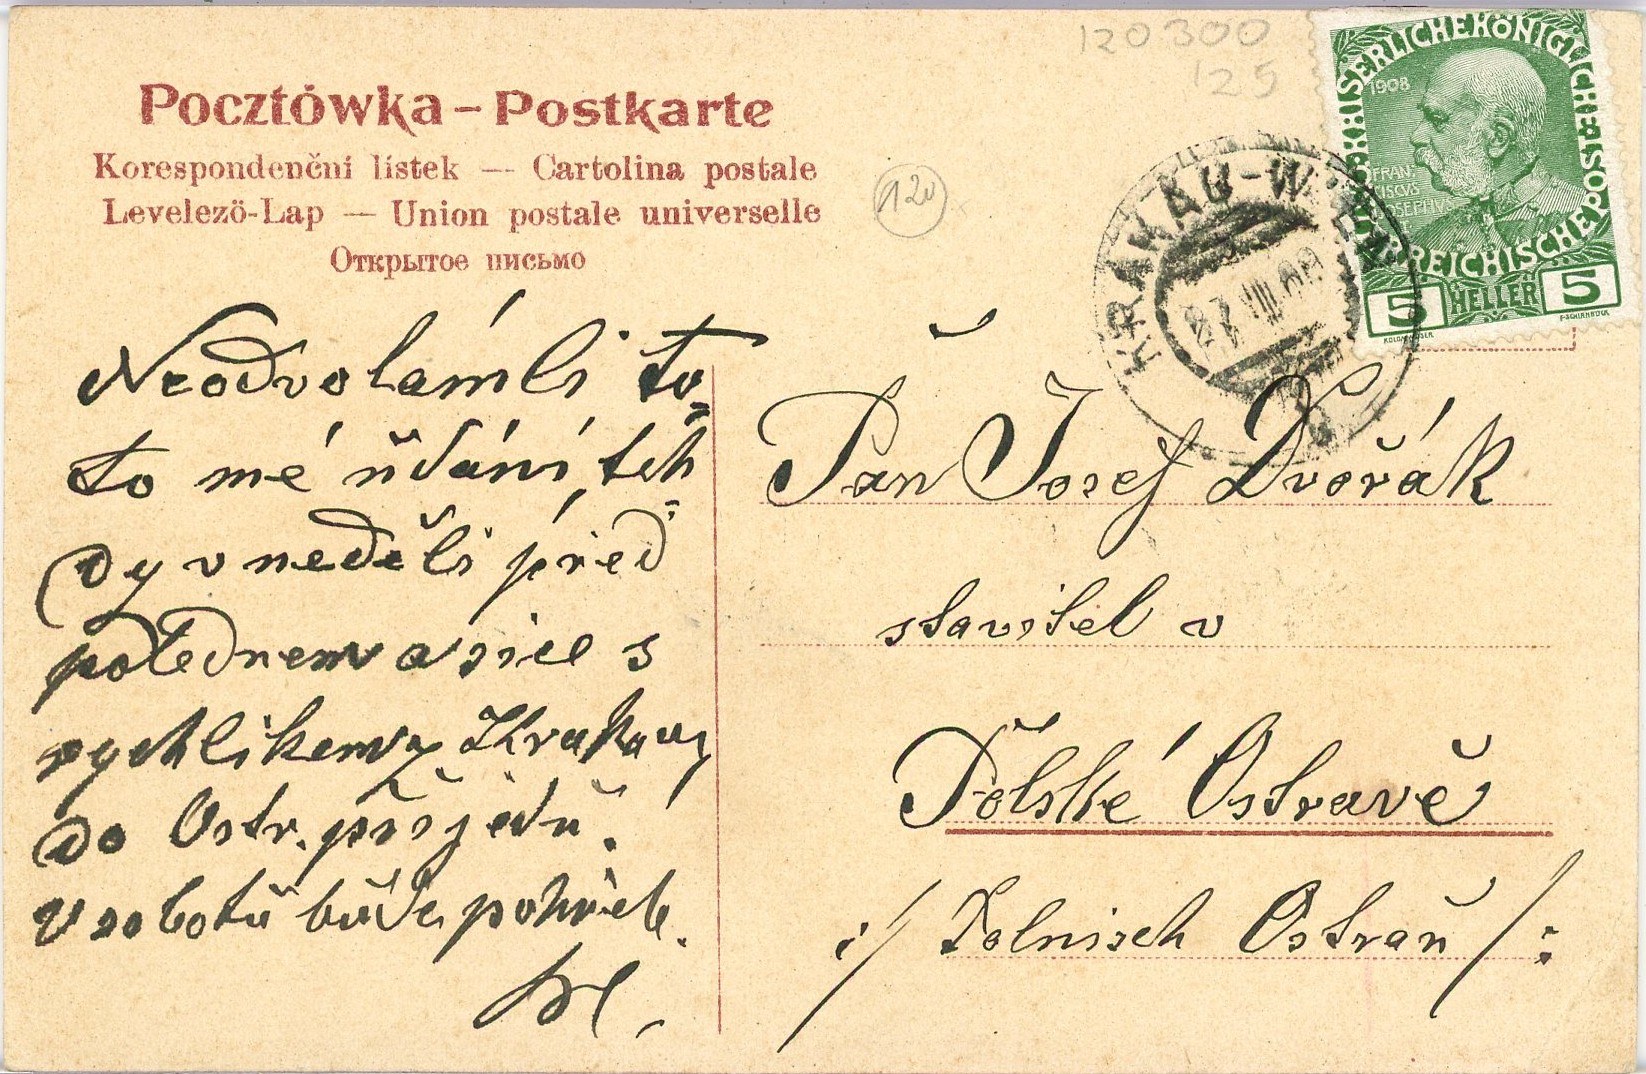 120300
125
Pocztówka – Postkarte
Korespondenční lístek — Cartolina postale
Levelező-Lap — Union postale universelle
Открытое письмо
120
KRAKAU-WIEN
27 VIII 09
KAISERLICHE KÖNIGLICHE ÖSTERREICHISCHE POST
1908
FRAN
CISCVS
IOSEPHVS
5 HELLER 5
Neodvolámli to=
to mé udání, teh
dy v neděli před
polednem a sice s
rychlíkem z Krakova
do Ostr. přijedu.
V sobotu bude pohřeb.
Pan Josef Dvořák
stavitel v
Polské Ostravě
:/ Polnisch Ostrau /: